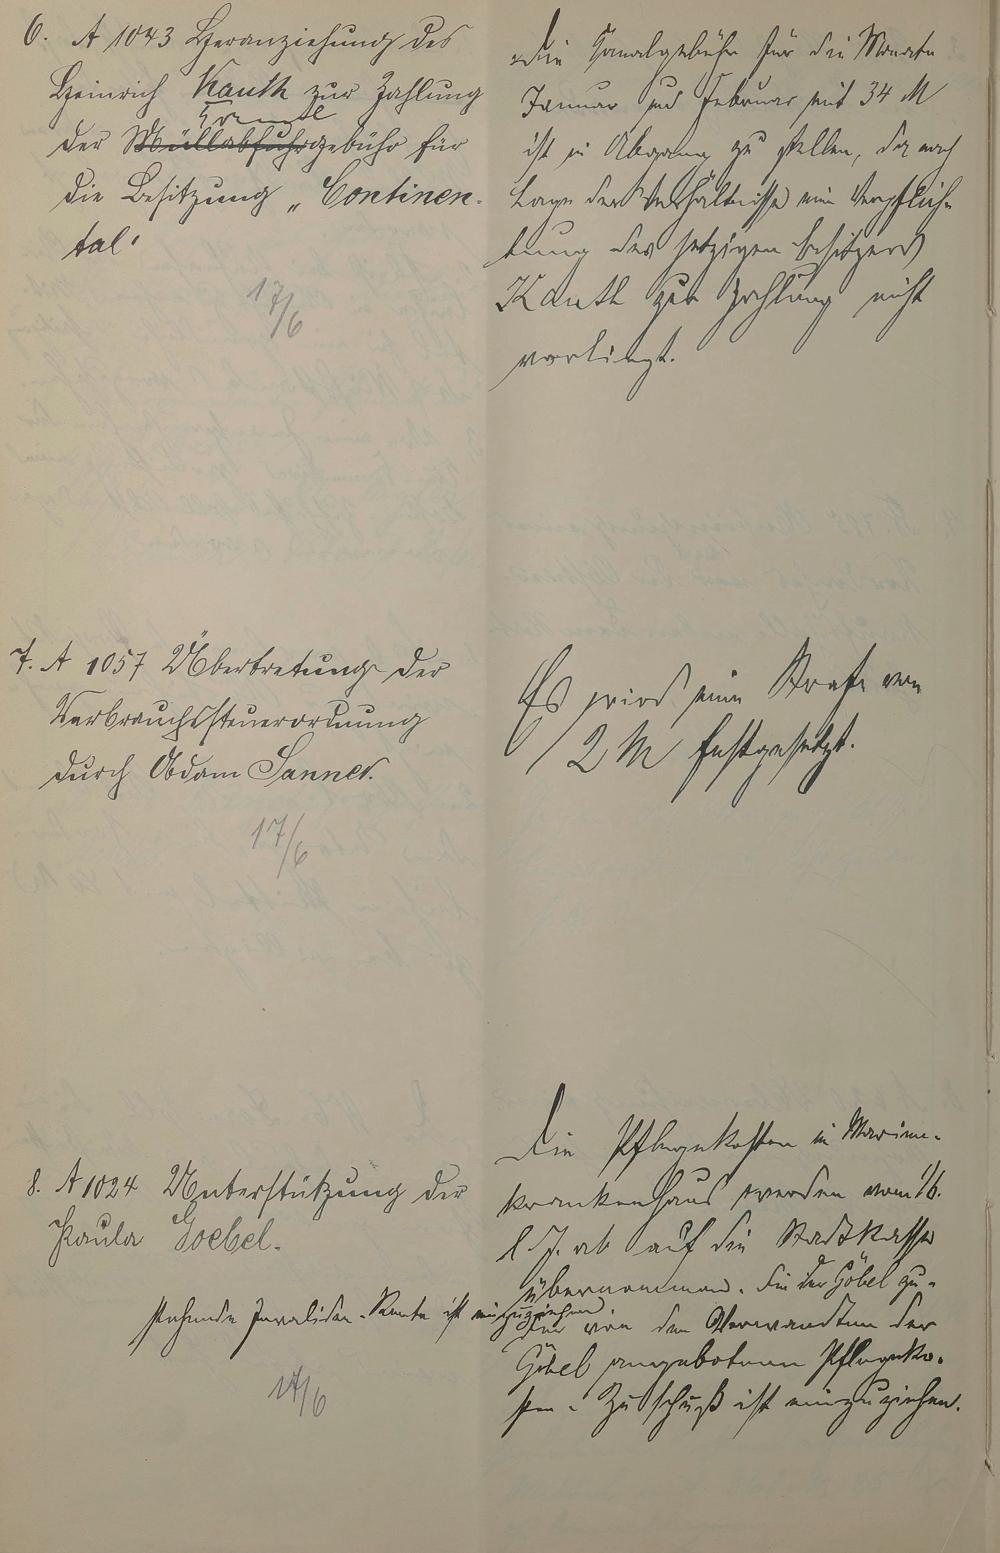 6. A 1043 Heranziehung des
Heinrich Kauth zur Zahlung
Kanal
der Müllabfuhrgebühr für
die Besitzung „Continen-
tal"
17/6
Die Kanalgebühr für die Monate
Januar und Februar mit 34 M
ist in Abgang zu stellen, da nach
Lage der Verhältnisse eine Verpflich-
tung des jetzigen Besitzers
Kauth zur Zahlung nicht
vorliegt.
7. A 1057 Übertretung der
Verbrauchssteuerordnung
durch Adam Sanner.
17/6
Es wird eine Strafe von
12 M festgesetzt.
8. A 1024 Unterstützung der
Paula Goebel.
Die Pflegekosten im Marien-
krankenhaus werden vom 1/6.
l. J. ab auf die Stadtkasse
übernommen. Die der Göbel zu-
stehende Invaliden-Rente ist einzuziehen
Der von den Verwandten der
Göbel angebotene Pflegeko-
sten-Zuschuß ist einzuziehen.
14/6